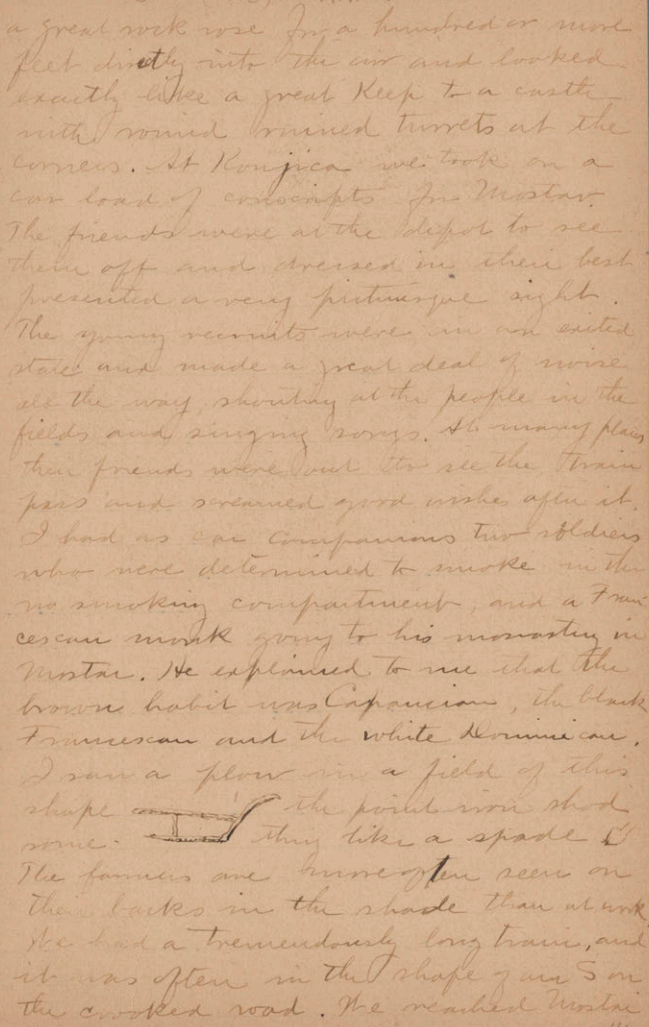 a great rock rose for a hundred or more
feet directly into the air and looked
exactly like a great Keep to a castle
with round ruined turrets at the
corners. At Konjica we took on a
car load of conscripts for Mostar.
The friends were at the depot to see
them off and dressed in their best
presented a very picturesque sight.
The young recruits were in an exited
state and made a great deal of noise
all the way, shouting at the people in the
fields and singing songs. At many places
their friends were out to see the train
pass and screamed good wishes after it.
I had as car companions two soldiers
who were determined to smoke in the
no smoking compartment, and a Fran-
cescan monk going to his monastery in
Mostar. He explained to me that the
brown habit was Capaucian, the black
Francescan and the white Dominican.
I saw a plow in a field of this
shape the point iron shod
some- thing like a spade
The farmers are more often seen on
their backs in the shade than at work.
We had a tremendously long train, and
it was often in the shape of an S on
the crooked road. We reached Mostar